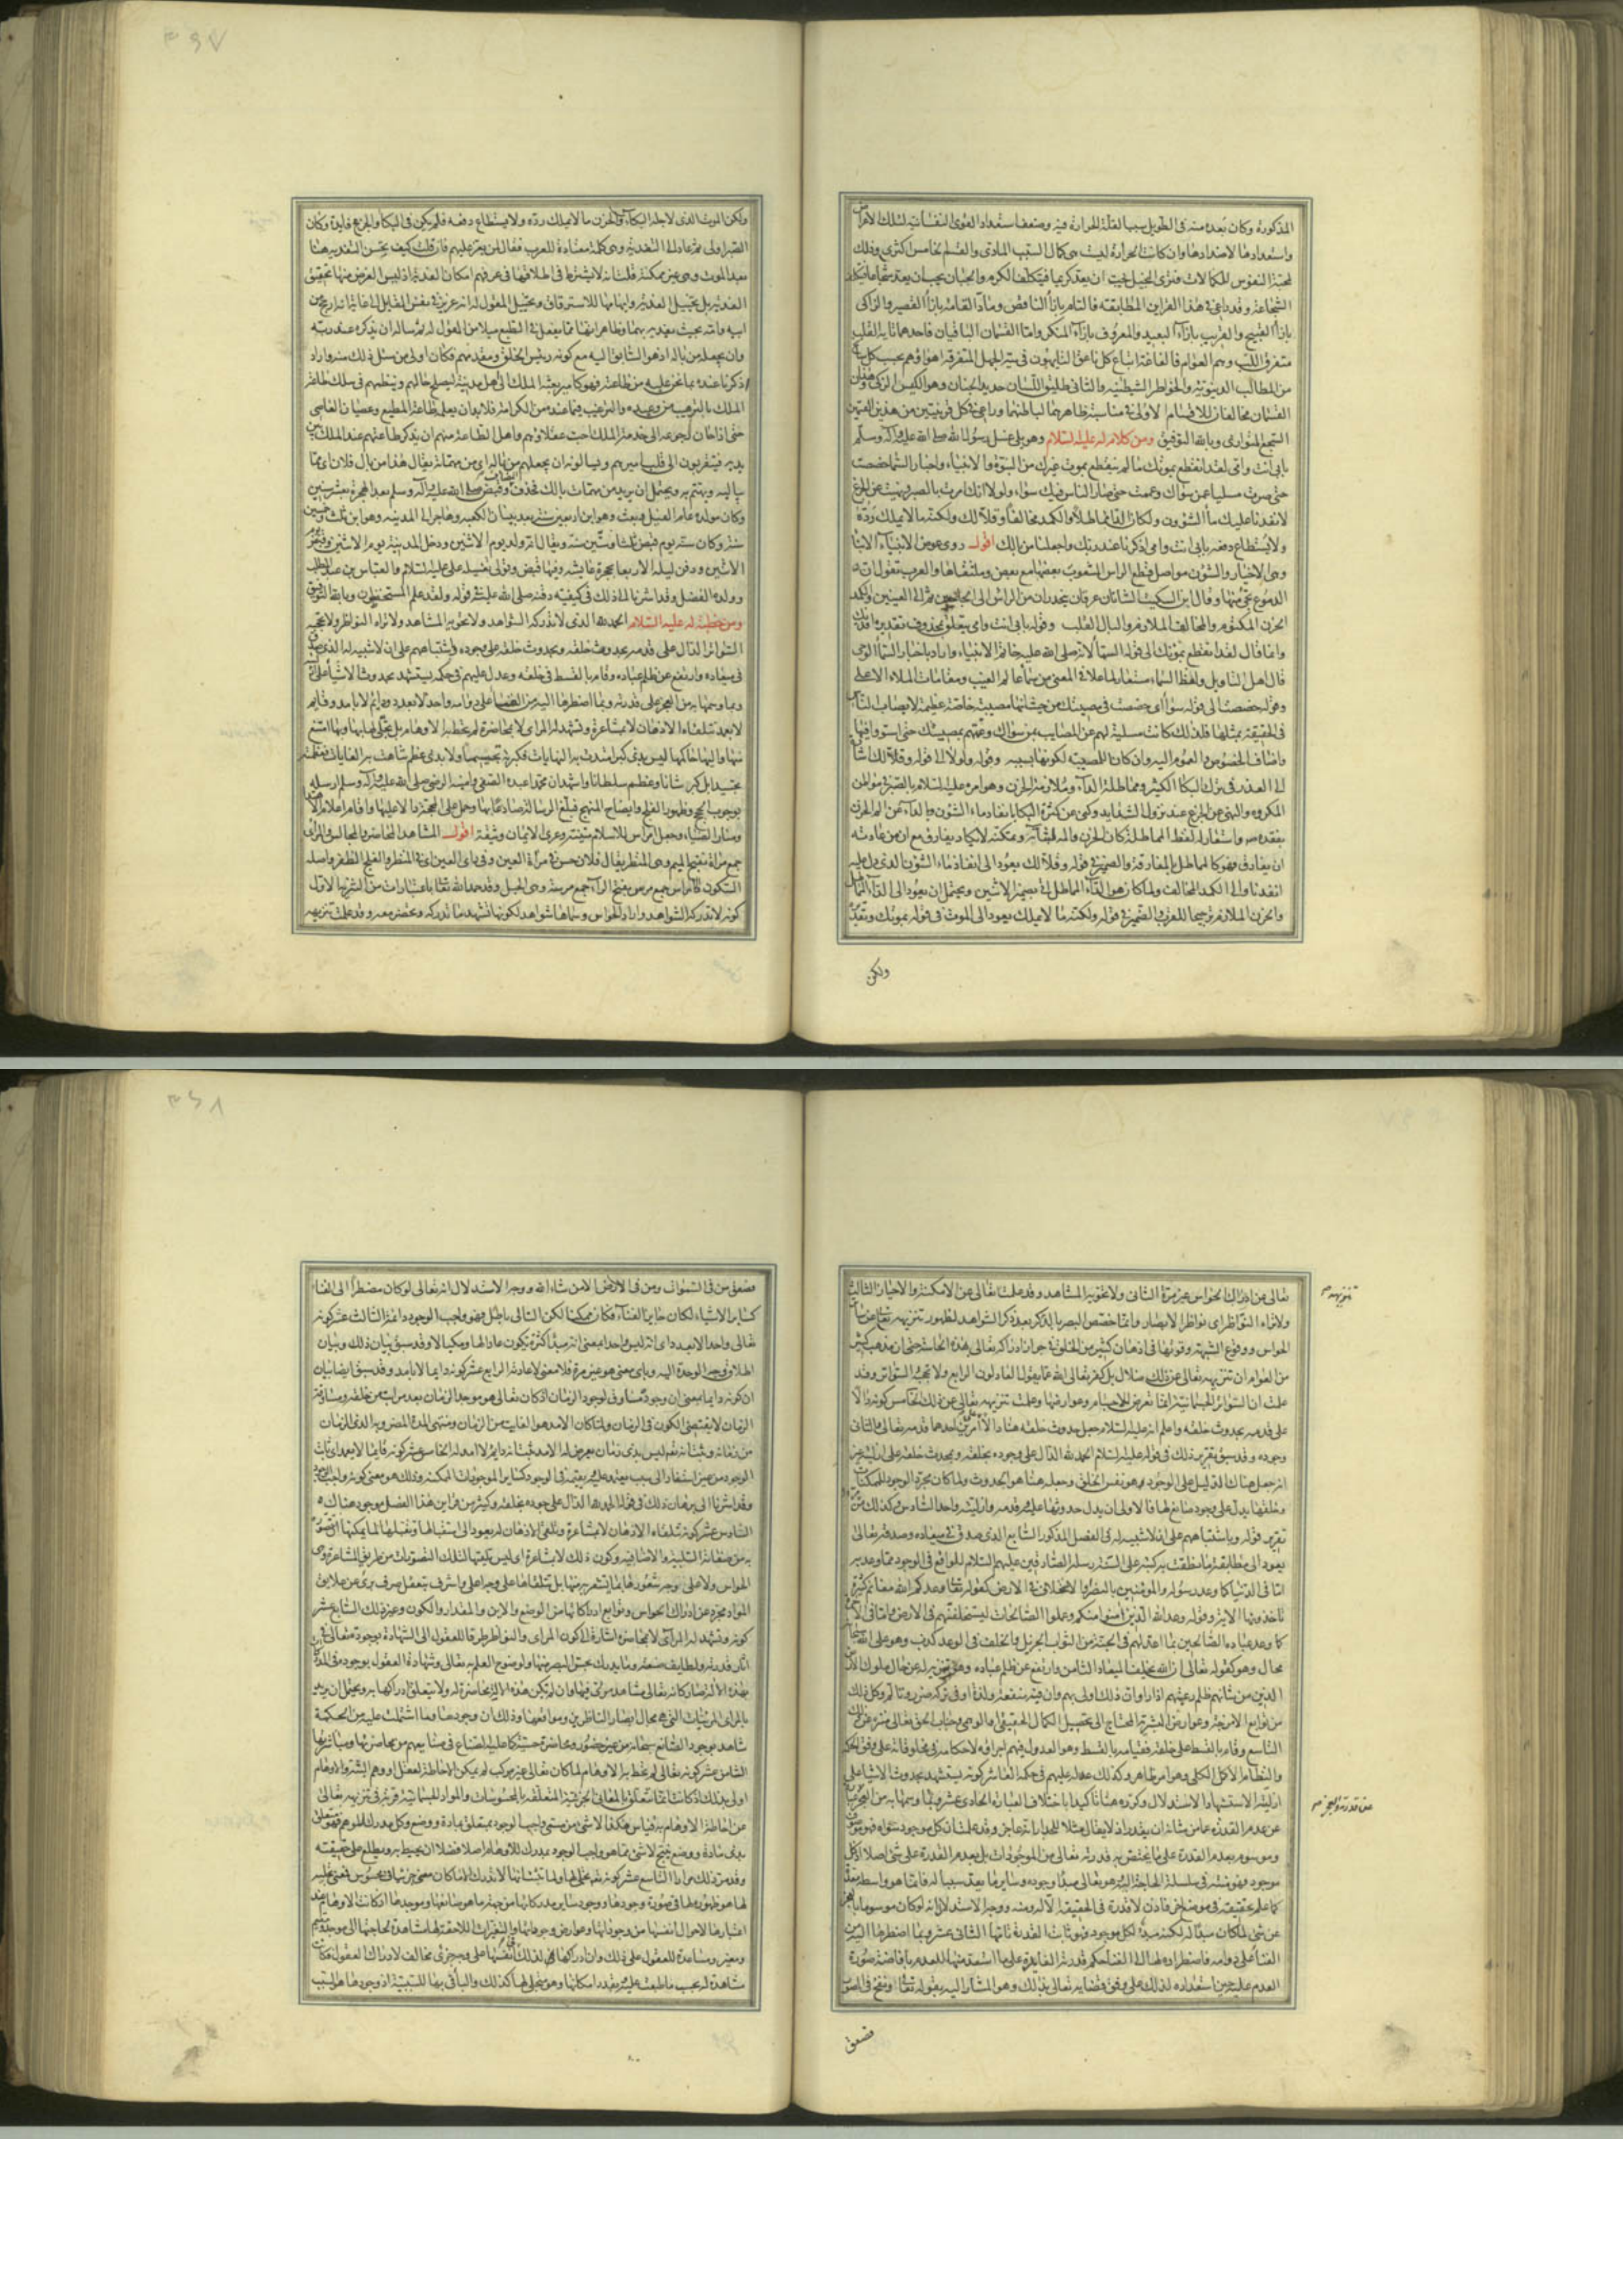 المذكورة وكان بعده منه فى الطويل سببا لقلة الحرارة فيه وضعف استعداد القوى النفسانية لتلك الامور
واستعدادها لاضدادها وان كانت الحرارة ليست هى كمال السبب المادى والقسم الخامس كثرى وذلك
لمحبة النفوس للكمالات فترى البخيل يحب ان يعد كريما فيتكلف الكرم والجبان يحب ان يعد شجاعا فيتكلف
الشجاعة وقد راعى فى هذه القراين المطابقة فالتام بازآء الناقص وماد القامة بازآء القصير والزاكى
بازآء القبيح والقريب بازآء البعيد والمعروف بازآء المنكر واما القسمان الباقيان فاحدهما تايه القلب
متفرق اللب وهم العوام
من المطالب الدنيوية والخواطر الشيطانية والثانى طليق اللسان حديد الجنان وهو الكيس الزكى وهذان
القسمان مخالفان للاقسام الاولى فى مناسبة ظاهرهما لباطنهما وراعى فى كل قرينتين من هذين القسمين
السجع المتوازى وبالله التوفيق ومن كلام له عليه السلام وهو يلى غسل رسول الله صلى الله عليه وآله وسلم
بابى انت وامى لقد انقطع بموتك ما لم ينقطع بموت غيرك من النبوة والانبياء واخبار السماء خصصت
حتى صرت مسليا عن سواك وعممت حتى صار الناس فيك سواء ولولا انك امرت بالصبر ونهيت عن الجزع
لانفدنا عليك ماء الشؤون ولكان الداء مماطلا والكمد محالفا وقلا لك ولكنه ما لا يملك رده
ولا يستطاع دفعه بابى انت وامى اذكرنا عند ربك واجعلنا من بالك اقول روى عوض الانبياء الانباء
وهى الاخبار والشؤن مواصل قطع الراس المشعوب بعضها مع بعض وملتقاها والعرب تقول ان
الدموع تجئ منها وقال ابن السكيت الشانان عرقان ينحدران من الراس الى الحاجبين ثم الى العينين والكمد
الحزن المكتوم والمحالف الملازم والبال القلب وقوله بابى انت وامى يتعلق بمحذوف تقديره افديك
وانما قال لقد انقطع بموتك الى قوله السماء لانه صلى الله عليه خاتم الانبياء واراد باخبار السماء الوحى
قال اهل التاويل ولفظ السماء مستعار لما علا فى المعنى من سماء عالم الغيب ومقامات الملاء الاعلى
وقوله خصصت الى قوله سواء اى خصصت فى مصيبتك من حيث انها مصيبة خاصة عظيمة لا يصاب الناس
فى الحقيقة بمثلها فلذلك كانت مسلية لهم عن المصايب بمن سواك وعمتهم بمصيبتك حتى استووا فيها
واضاف الخصوص والعموم اليه وان كان للمصيبة لكونها بسببه وقوله ولولا الى قوله وقلا لك اشارة
الى العذر فى ترك البكاء الكثير ومماطلة الداء وملازمة الحزن وهو امره عليه السلام بالصبر فى مواطن
المكروه والنهى عن الجزع عند نزول الشدايد وكنى عن كثرة البكاء بانفاد ماء الشؤن والداء عن الم الحزن
بفقده واستعار له لفظ المماطلة كان الحزن والم لثباته وتمكنه لا يكاد يفارق مع ان من عادته
ان يفارق فهو كالمماطل بالمفارقة والضمير فى قوله وقلا لك يعود الى انفاد ماء الشؤن الذى دل عليه
انفدنا والى الكمد المحالف ولما كان هو الداء المماطل اتى بضمير الاثنين ويحتمل ان يعود الى الداء المماطل
والحزن الملازم ترجيحا للقرب والضمير فى قوله ولكنه ما لا يملك يعود الى الموت فى قوله بموتك وتقديره
ولكن
٣٩٧
ولكن الموت الذى لاجله البكاء والحزن ما لا يملك رده ولا يستطاع دفعه فلم يكن فى البكاء والجزع فايدة وكان
الصبر اولى ثم عاد الى التفدية وهى كلمة معتادة للعرب تقال لمن يعز عليهم فان قلت كيف يحسن التفدية هنا
بعد الموت وهى غير ممكنة قلت انه لا يشترط فى اطلاقها فى عرفهم امكان الفدية اذ ليس الغرض منها تحقيق
الفدية بل تخييل الفدية وايهامها للاسترقاق وتخييل المقول له انه عزيز فى نفس القايل الى غاية انه ارجح من
ابيه وامه بحيث يفديه بهما وظاهر انها مما يفعل فى الطبع ميلا من المقول له ثم ساله ان يذكره عند ربه
وان يجعله من باله اذ هو السابق اليه مع كونه رئيس الخلق ومقدمهم فكان اولى من سئل ذلك منه واراد
اذكرنا عنده بما نحن عليه من طاعته فهو كامير بعثه الملك الى اهل مدينة ليصلح حالهم وينظمهم فى سلك طاعة
الملك بالترهيب من وعيده والترغيب فيما عنده من الكرامة فلا بد ان يعلم طاعة المطيع وعصيان العاصى
حتى اذا حان رجوعه الى خدمة الملك احب عقلاؤهم واهل الطاعة منهم ان يذكر طاعتهم عند الملك بين
يديه فيتقربون الى قلب اميرهم ويسالونه ان يجعلهم من باله اى من مهماته يقال هذا من بال فلان اى مما
يباليه ويهتم به ويحتمل ان يريد من مهمات بالك فحذف المضاف وقبض صلى الله عليه وآله وسلم بعد الهجرة بعشر سنين
وكان مولده عام الفيل وبعث وهو ابن اربعين سنة بعد بنيان الكعبة وهاجر الى المدينة وهو ابن ثلث وخمسين
سنة وكان سنه يوم قبض ثلثا وستين سنة ويقال انه ولد يوم الاثنين ودخل المدينة يوم الاثنين وقبض يوم
الاثنين ودفن ليلة الاربعا بحجرة عايشة وفيها قبض وتولى تغسيله على عليه السلام والعباس بن عبد المطلب
وولده الفضل وقد اشرنا الى ذلك فى كيفية دفنه صلى الله عليه
ومن خطبة له عليه السلام الحمد لله الذى لا تدركه الشواهد ولا تحويه المشاهد ولا تراه النواظر ولا تحجبه
السواتر الدال على قدمه بحدوث خلقه وبحدوث خلقه على وجوده وباشتباههم على ان لا شبيه له الذى صدق
فى ميعاده وارتفع عن ظلم عباده وقام بالقسط فى خلقه وعدل عليهم فى حكمه مستشهد بحدوث الاشياء على ازليته
وبما وسمها به من العجز على قدرته وبما اضطرها اليه من الفناء على دوامه واحد لا بعدد ودايم لا بامد وقايم
لا بعمد تتلقاه الاذهان لا بمشاعرة وتشهد له المرائى لا بمحاضرة لم تحط به الاوهام بل تجلى لها بها وبها امتنع
منها واليها حاكمها ليس بذى كبر امتدت به النهايات فكبرته تجسيما ولا بذى عظم تناهت به الغايات فعظمته
تجسيدا بل كبر شانا وعظم سلطانا واشهد ان محمدا عبده الصفى وامينه الرضى صلى الله عليه وآله وسلم ارسله
بوجوب الحجج وظهور الفلج وايضاح المنهج فبلغ الرسالة صادعا بها وحمل على المحجة دالا عليها واقام اعلام الاهتداء
ومنار الضياء وجعل امراس الاسلام متينة وعرى الايمان وثيقة اقول المشاهد المحاضر والمجالس والمرائى
جمع مرآة بفتح الميم وهى المنظر يقال فلان حسن فى مرآة العين وفى راى العين اى فى المنظر والفلج الظفر واصله
السكون والامراس جمع مرس بفتح الرآء جمع مرسة وهى الحبل وقد حمد الله تعالى باعتبارات من التنزيه الاول
كونه لا تدركه الشواهد واراد الحواس وسماها شواهد لكونها تشهد ما تدركه وتحضر معه وقد علمت تنزيهه
تعالى عن ادراك الحواس غير مرة الثانى ولا تحويه المشاهد وقد علمت تعالى عن الامكنة والاحياز الثالث
ولا تراه النواظر اى نواظر الابصار وانما خصص البصر بالذكر بعد ذكر الشواهد لظهور تنزيهه تعالى عن ساير
الحواس ووقوع الشبهة وقوتها فى اذهان كثير من الخلق فى جواز ادراكه تعالى بهذه الحاسة حتى ان مذهب كثير
من العوام ان تنزيهه تعالى عن ذلك ضلال بل كفر تعالى الله عما يقول العادلون الرابع ولا تحجبه السواتر وقد
علمت ان السواتر الجسمانية انما تعرض للاجسام وعوارضها وعلمت تنزيهه تعالى عن ذلك الخامس كونه دالا
على قدمه بحدوث خلقه واعلم انه عليه السلام جعل حدوث خلقه هنا دالا على امرين احدهما قدمه تعالى والثانى
وجوده وقد سبق تقرير ذلك فى قوله عليه السلام الحمد لله الدال على وجوده بخلقه وبمحدث خلقه على ازليته غير
انه جعل هناك الدليل على الوجود هو نفس الخلق وجعله هنا هو الحدوث ولما كان مجرد الوجود للممكنات
وخلقها يدل على وجود صانع لها فالاولى ان يدل حدوثها عليه وقدمه وازليته واحد السادس وكذلك مر
تقرير قوله وباشتباههم على ان لا شبيه له فى الفصل المذكور السابع الذى صدق فى ميعاده وصدقه تعالى
يعود الى مطابقة ما نطقت به كتبه على السنة رسله الصادقين عليهم السلام للواقع فى الوجود مما وعد به
اما فى الدنيا كما وعد رسوله والمؤمنين بالنصر والاستخلاف فى الارض كقوله تعالى وعدكم الله مغانم كثيرة
تاخذونها الاية وقوله وعد الله الذين آمنوا منكم وعملوا الصالحات ليستخلفنهم فى الارض واما فى الاخرة
كما وعد عباده الصالحين بما اعد لهم فى الجنة من الثواب الجزيل والخلف فى الوعد كذب وهو على الله سبحانه
محال وهو كقوله تعالى ان الله لا يخلف الميعاد الثامن وارتفع عن ظلم عباده وهو تنزيه له عن حال ملوك الارض
الذين من شانهم ظلم رعيتهم اذا راوا ان ذلك اولى بهم وان فيه منفعة ولذة او فى تركه ضررا وتالم وكل ذلك
من توابع الامزجة وعوارض البشرية المحتاج الى تحصيل الكمال الحقيقى او الوهمى وجناب الحق تعالى منزه عن ذلك
التاسع وقام بالقسط على خلقه فقيامه بالقسط وهو العدل فيهم اجراؤه لاحكامه فى مخلوقاته على وفق الحكمة
والنظام الاكمل الكلى وهو امر ظاهر وكذلك عدله عليهم فى حكمه العاشر كونه مستشهد بحدوث الاشيا على
ازليته الاستشهاد الاستدلال وكرره هنا تاكيدا باختلاف العبارة الحادى عشر وبما وسمها به من العجز
عن عدم القدرة عما من شانه ان يقدر اذ لا يقال مثلا للجدار انه عاجز وقد علمت ان كل موجود سواه فهو موصوف
وموسوم بعدم القدرة على ما يختص به قدرته تعالى من الموجودات بل بعدم القدرة على شئ اصلا اذ كل
موجود فهو منته فى سلسلة الحاجة اليه وهو تعالى مبدأ وجوده وساير ما يعد سببا له فانما هو واسطة معدة
كما علم تحقيقه فى موضع آخر فاذن لا قدرة فى الحقيقة الا له ومنه ووجه الاستدلال انه لو كان موسوما بالعجز
عن شئ لما كان مبدأ له لكنه مبدأ لكل موجود فهو ثابت القدرة تامها الثانى عشر وبما اضطرها اليه من
الفناء على دوامه
العدم عليه حين استعداده لذلك على وفق قضايه تعالى بذلك وهو المشار اليه بقوله تعالى ونفخ فى الصور
تنزيهه صح
على قدرته والعجز صح
فصعق
٣٩٨
فصعق من فى السموات ومن فى الارض الا من شاء الله ووجه الاستدلال انه تعالى لو كان مضطرا الى الفناء
كساير الاشياء لكان جايز الفناء فكان ممكنا لكن التالى باطل فهو واجب الوجود دايم الثالث عشر كونه
تعالى واحدا لا بعدد اى انه ليس واحدا بمعنى انه مبدأ لكثرة يكون عادا لها ومكيالا وقد سبق بيان ذلك وبيان
اطلاق وجه الوحدة اليه وباى معنى هو غير مرة فلا معنى لاعادته الرابع عشر كونه دايما لا بامد وقد سبق ايضا بيان
ان كونه دايما بمعنى ان وجوده مساوق لوجود الزمان اذ كان تعالى هو موجد الزمان بعد مراتب من خلقه ومساوقة
الزمان لا يقتضى الكون فى الزمان ولما كان الامد هو الغاية من الزمان ومنتهى المدة المضروبة لذى الزمان
من زمانه وثبت انه تعالى ليس بذى زمان يعرض له الامد ثبت انه دايم لا امد له الخامس عشر كونه قايما لا بعمد اى ثابت
الوجود من غير استناد الى سبب يعتمد عليه ويقيمه فى الوجود كساير الموجودات الممكنة وذلك هو معنى كونه واجب الوجود
وقد اشرنا الى برهان ذلك فى قوله الحمد لله الدال على وجوده بخلقه وكثير من قراين هذا الفصل موجود هناك
السادس عشر كونه تتلقاه الاذهان لا بمشاعرة وتلقى الاذهان له يعود الى استقبالها وتقبلها لما يمكنها ان تتصوره
به من صفاته السلبية والاضافية وكون ذلك لا بمشاعرة اى ليس تلقيها لتلك التصورات من طريق المشاعر وهى
الحواس ولا على وجه شعورها بما يشعر به منها بل تتلقاها على وجه اعلى واشرف بتعقل صرف برئ عن علايق
المواد مجرد عن ادراك الحواس وتوابع ادراكاتها من الوضع والاين والمقدار والكون وغير ذلك السابع عشر
كونه وتشهد له المرائى لا بمحاضرة اشارة الى كون المرائى والنواظر طرقا للعقول الى الشهادة بوجوده تعالى فى
آثار قدرته ولطايف صنعته وما يدرك بحس البصر منها ولوضوح العلم به تعالى وشهادة العقول بوجوده فى المدركات
بهذه الالة صار كانه تعالى مشاهد مرئى فيها وان لم تكن هذه الالة محاضرة له ولا يتعلق ادراكها به ويحتمل ان يريد
بالمرائى المرئيات التى هى مجال ابصار الناظرين ومواقعها وذلك ان وجودها وما اشتملت عليه من الحكمة
شاهد بوجود الصانع سبحانه من غير حضور ومحاضرة حسية كما عليه الصناع فى صنايعهم من محاضرتها ومباشرتها
الثامن عشر كونه تعالى لم تحط به الاوهام لما كان تعالى غير مركب لم يمكن الاحاطة لعقل او وهم البتة والاوهام
اولى بذلك اذ كانت انما تتعلق بالمعانى الجزئية المتعلقة بالمحسوسات والمواد الجسمانية فترتب فى تنزيهه تعالى
عن احاطة الاوهام به قياس هكذا لا شئ من مسمى واجب الوجود بمتعلق بمادة ووضع وكل مدرك للوهم فهو متعلق
بمادة ووضع ينتج لا شئ مما هو واجب الوجود بمدرك للاوهام اصلا فضلا ان يحيط به ويطلع على حقيقته
وقد مر ذلك مرارا التاسع عشر كونه تعالى تجلى لها بها
لها هو ظهوره لها فى صورة وجودها ووجود ساير مدركاتها من جهة ما هو صانعها وموجدها اذ كانت الاوهام عند
اعتبارها لاحوال انفسها من وجوداتها وعوارض وجوداتها والتغيرات اللاحقة لها مشاهدة لحاجتها الى موجد ومقيم
ومغير ومساعدة للعقول على ذلك وان ادراكها لذلك فى انفسها على وجه جزئى مخالف لادراك العقول فكانت
مشاهدة له بحسب ما طبعت عليه وبقدر امكانها وهو متجلى لها كذلك والباء فى بها للسببية اذ وجودها هو السبب